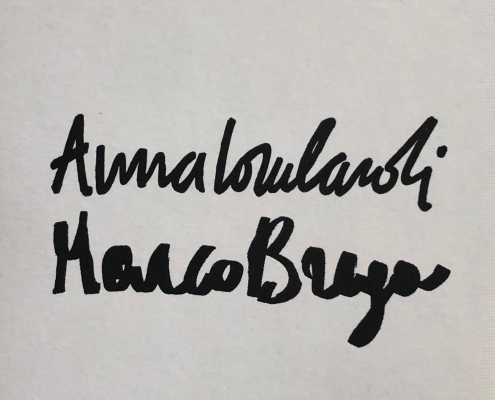 Anna Lombaroli
Marco Braga